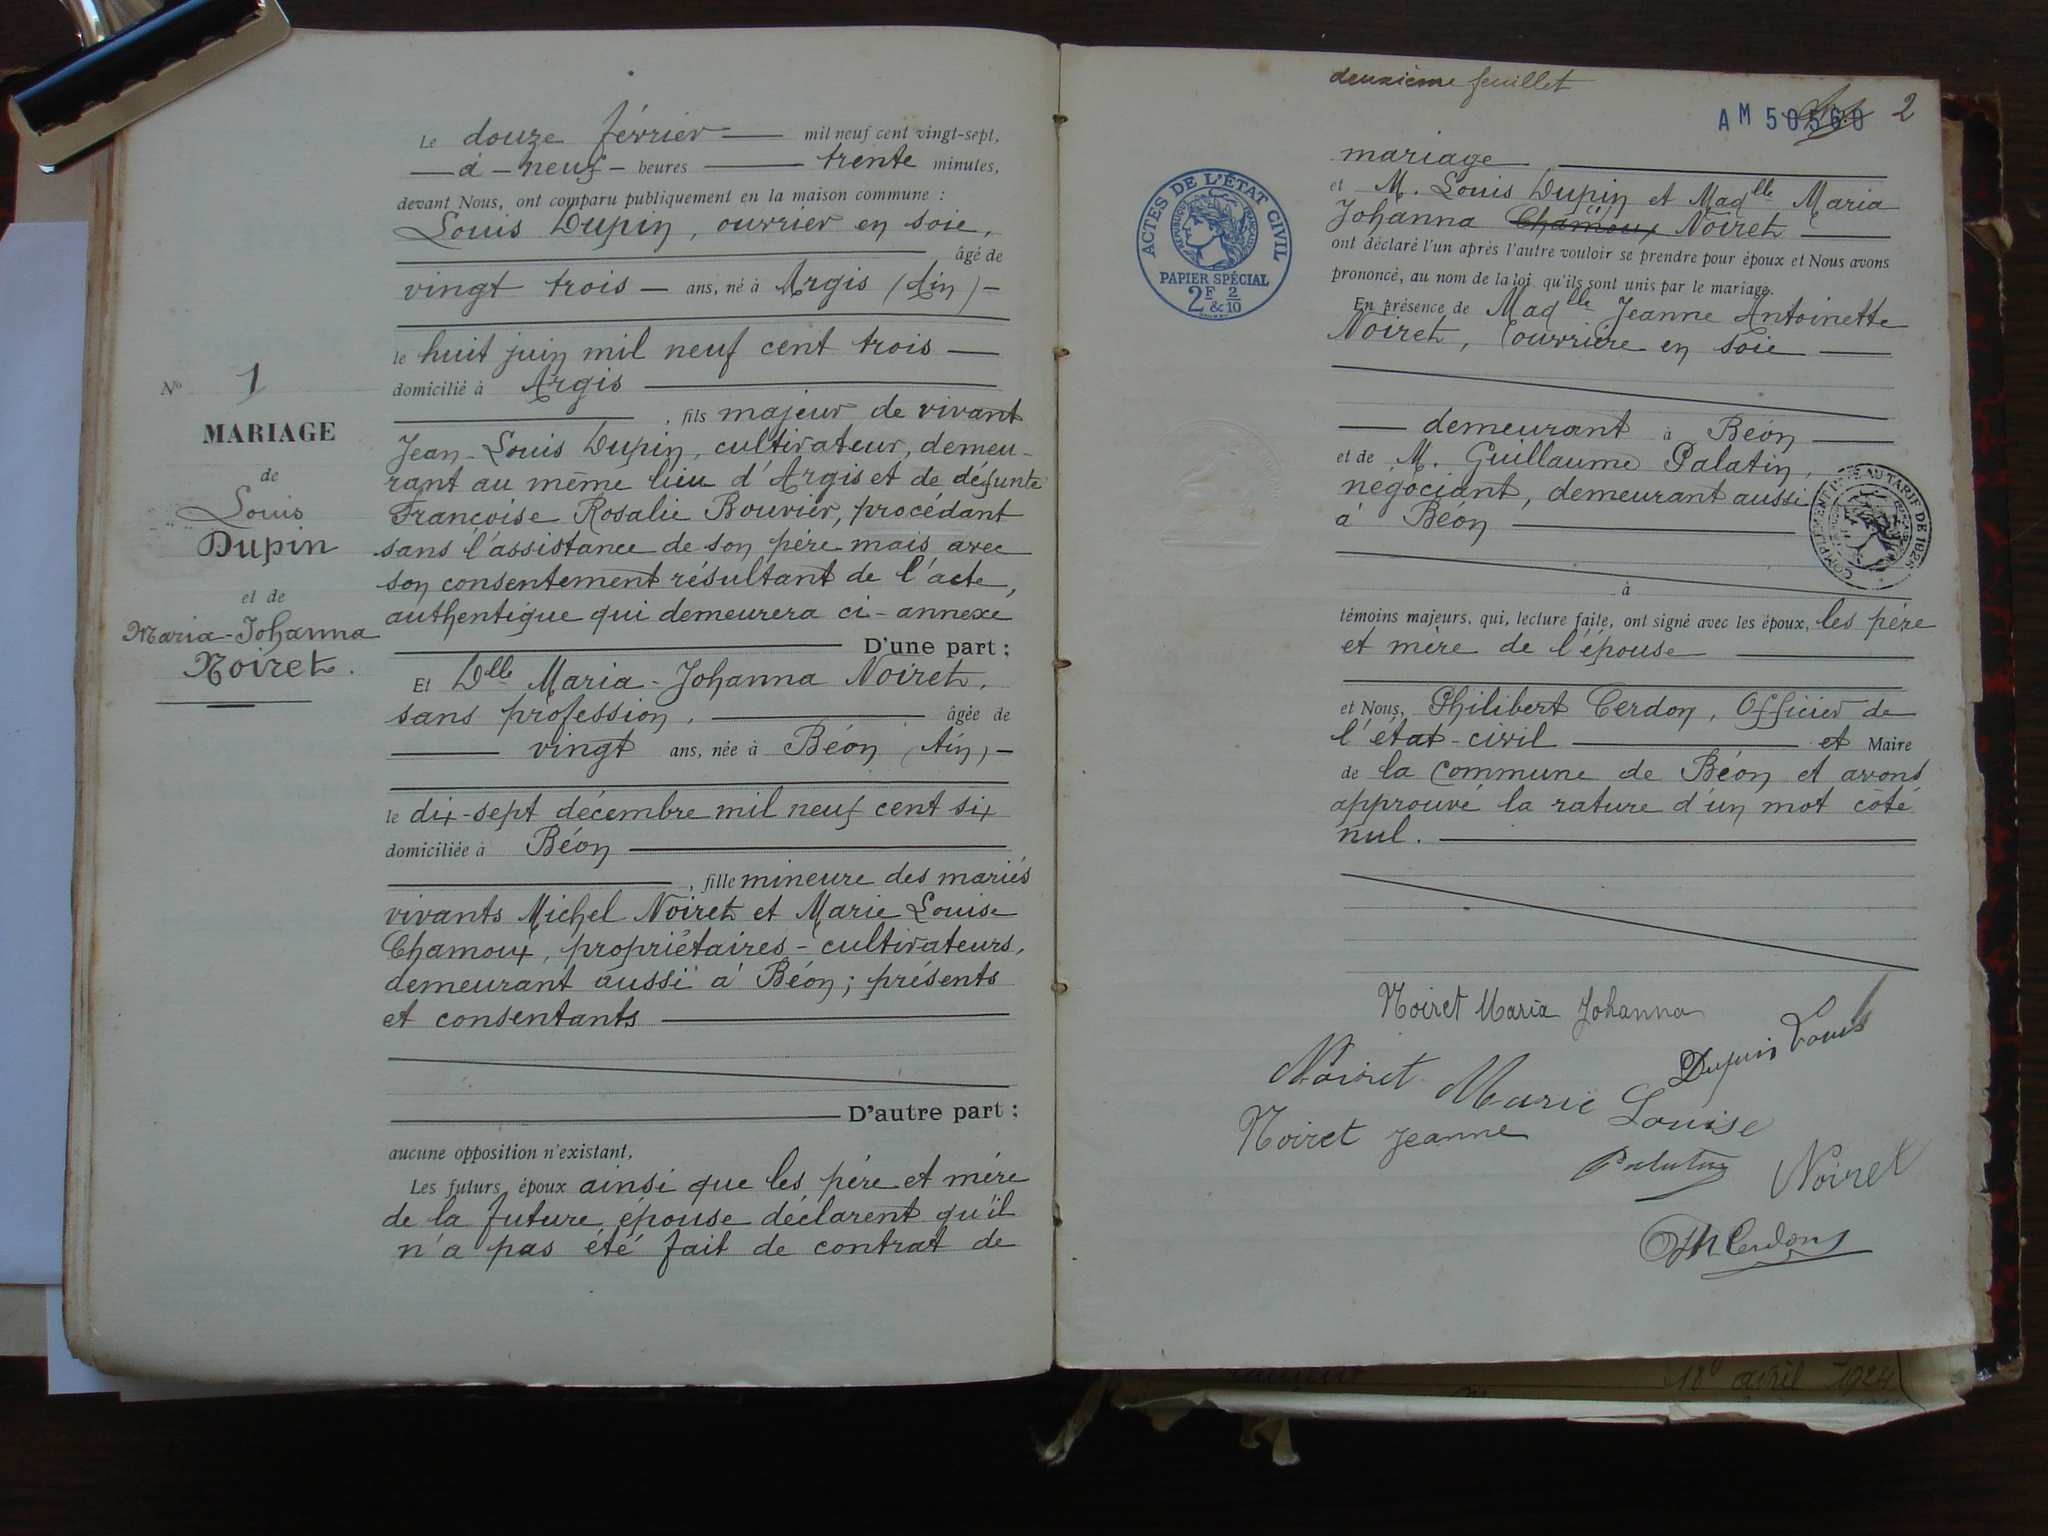 Le douze février mil neuf cent vingt-sept,
à - neuf - heures trente minutes,
devant Nous, ont comparu publiquement en la maison commune :
Louis Dupin, ouvrier en soie,
âgé de
vingt trois - ans, né à Argis (Ain) -
le huit juin mil neuf cent trois
domicilié à Argis
, fils majeur de vivant
Jean-Louis Dupin, cultivateur, demeu-
rant au même lieu d'Argis et de défunte
Françoise Rosalie Bouvier, procédant
sans l'assistance de son père mais avec
son consentement résultant de l'acte,
authentique qui demeurera ci-annexé
D'une part ;
Et Dlle Maria-Johanna Noiret,
sans profession, âgée de
vingt ans, née à Béon (Ain) -
le dix-sept décembre mil neuf cent six
domiciliée à Béon
, fille mineure des mariés
vivants Michel Noiret et Marie Louise
Chamoux, propriétaires-cultivateurs,
demeurant aussi à Béon ; présents
et consentants
D'autre part ;
aucune opposition n'existant,
Les futurs époux ainsi que les père et mère
de la future épouse déclarent qu'il
n'a pas été fait de contrat de
No 1
MARIAGE
de
Louis
Dupin
et de
Maria-Johanna
Noiret.
deuxième feuillet
AM 50560 2
mariage
et M. Louis Dupin et Madlle Maria
Johanna Chamoux Noiret
ont déclaré l'un après l'autre vouloir se prendre pour époux et Nous avons
prononcé, au nom de la loi qu'ils sont unis par le mariage.
En présence de Madlle Jeanne Antoinette
Noiret, ouvrière en soie
demeurant à Béon
et de M. Guillaume Palatin,
négociant, demeurant aussi
à Béon
à
témoins majeurs, qui, lecture faite, ont signé avec les époux, les père
et mère de l'épouse
et Nous, Philibert Cerdon, Officier de
l'état-civil et Maire
de la commune de Béon et avons
approuvé la rature d'un mot côté
nul.
ACTES DE L'ÉTAT CIVIL
RÉPUBLIQUE FRANÇAISE
PAPIER SPÉCIAL
2F & 2/10
COMPLÉMENT DE AU TARIF DE 1926
Noiret Maria Johanna
Dupin Louis
Noiret Marie Louise
Noiret Jeanne
Palatin
Noiret
Ph Cerdon
18 avril 1924